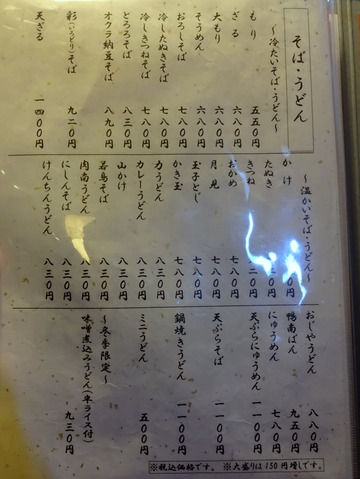 そば・うどん
～冷たいそば・うどん～
もり 五五〇円
ざる 六八〇円
大もり 六八〇円
そうめん 六八〇円
おろしそば 七八〇円
冷したぬきそば 七八〇円
冷しきつねそば 七八〇円
とろろそば 八三〇円
オクラ納豆そば
彩(いろどり)そば 九二〇円
天ざる 一四〇〇円
～温かいそば・うどん～
かけ
たぬき
きつね
おかめ 七八〇円
月見 七八〇円
玉子とじ 七八〇円
かき玉 七八〇円
力うどん 八三〇円
カレーうどん 八三〇円
山かけ 八三〇円
若鳥そば 八三〇円
肉南うどん 八三〇円
にしんそば 八三〇円
けんちんうどん 八三〇円
おじやうどん 八八〇円
鴨南ばん 九五〇円
にゅうめん 七八〇円
天ぷらにゅうめん 一一〇〇円
天ぷらそば 一一〇〇円
鍋焼きうどん 一一〇〇円
ミニうどん 五〇〇円
～冬季限定～
味噌煮込みうどん(半ライス付) 九三〇円
※税込価格です。 ※大盛りは150円増しです。